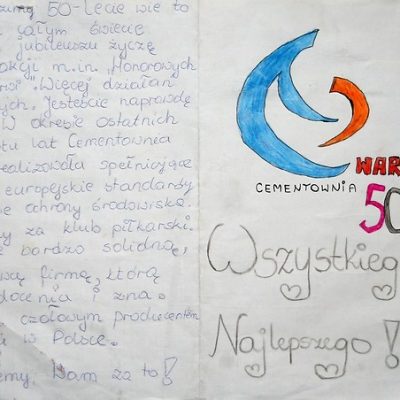 50-lecie wie to
całym świecie
jubileuszu życzę
akcji m.in. „Honorowych
". Więcej działań
ych. Jesteście naprawdę
W okresie ostatnich
lat Cementownia
realizowała spełniające
europejskie standardy
ochrony środowiska.
za klub piłkarski.
bardzo solidną,
firmę, którą
docenia i zna.
czołowym producentem
w Polsce.
Wam za to!
WAR
CEMENTOWNIA
50
Wszystkieg
Najlepszego!